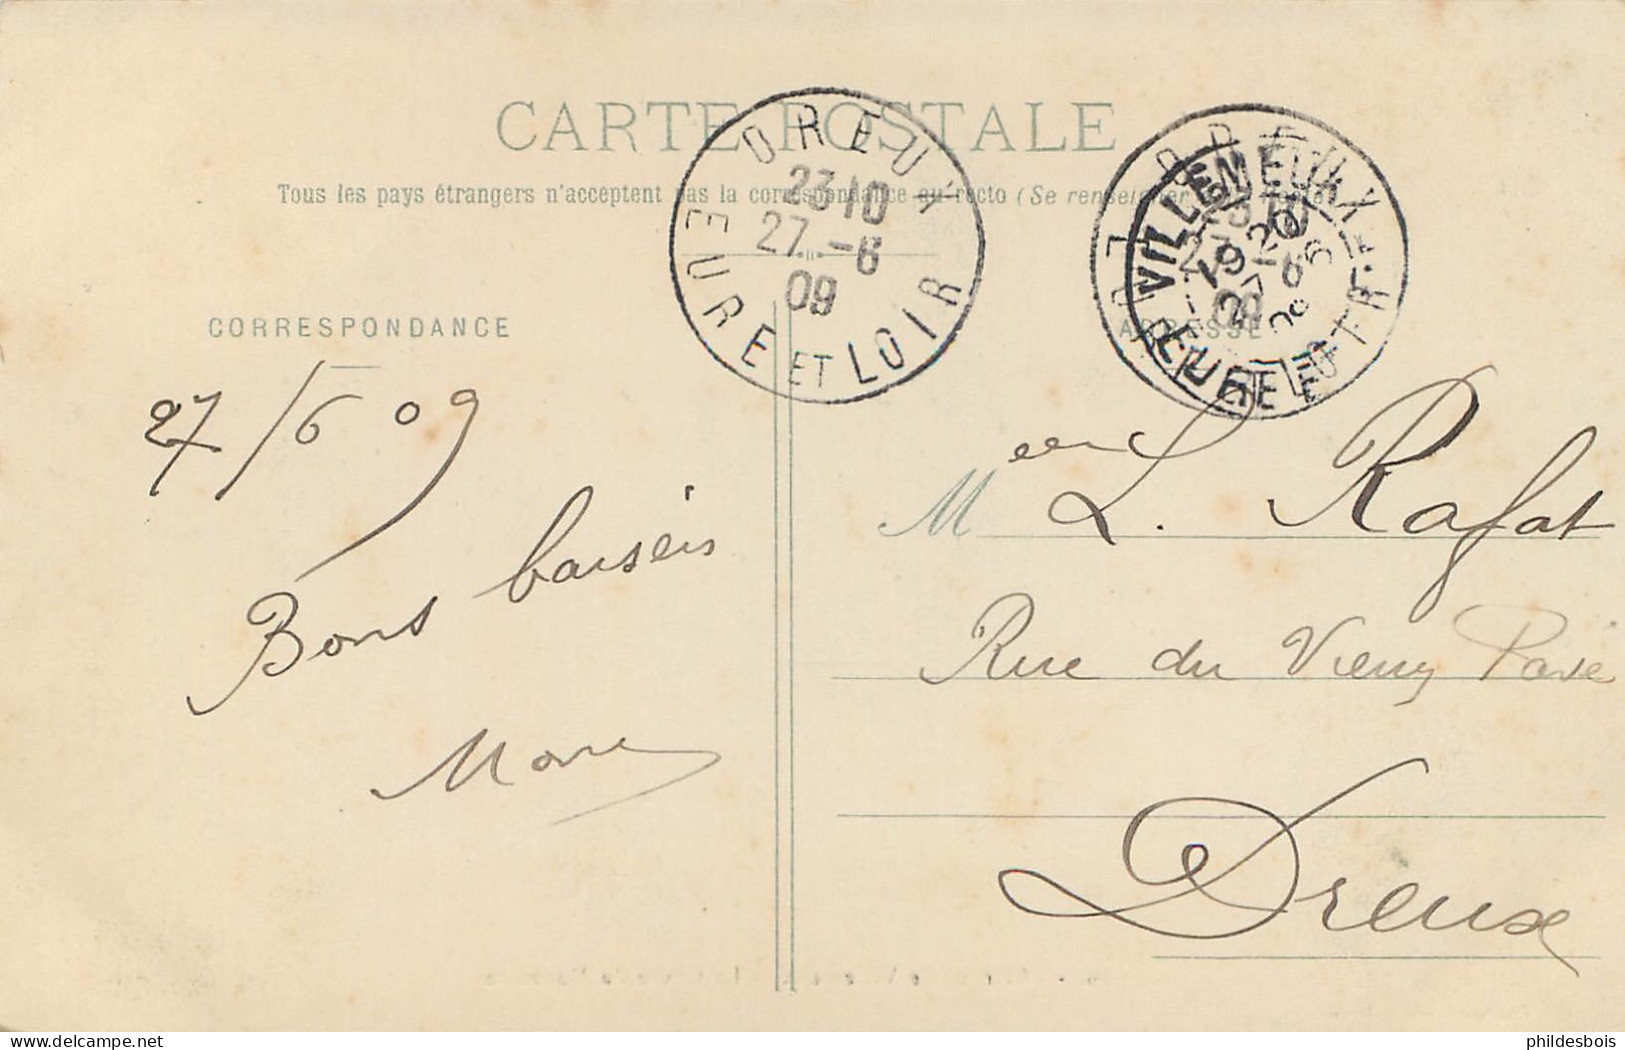 CARTE POSTALE
Tous les pays étrangers n'acceptent pas la correspondance au recto (Se renseigner
DREUX
23 10
27 -6
09
EURE ET LOIR
VILLEMEUX
19 20
27 6
09
EURE ET LOIR
CORRESPONDANCE
ADRESSE
27/6 09
Bons baisers
M L. Rafat
Rue du Vieux Pavé
Dreux
phildesbois